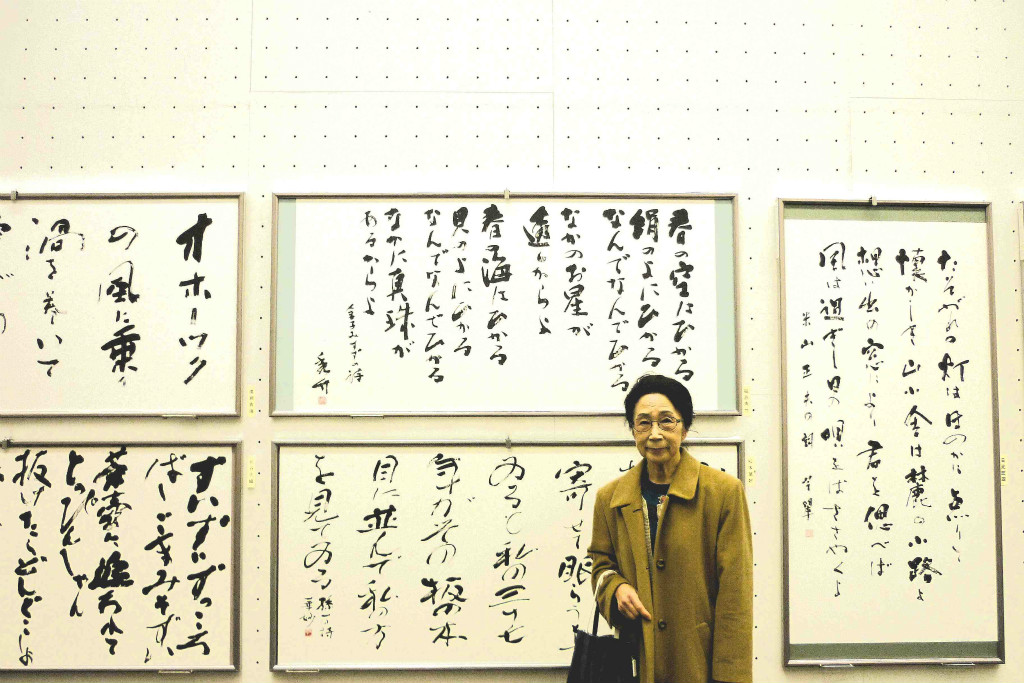 オホーツク
の風に乗り
渦を巻いて
春の空はひかる
絹のよにひかる
なんでなんでひかる
なかのお星が
透るからよ
春の海はひかる
貝のよにひかる
なんでなんでひかる
なかに真珠が
あるからよ
金子みすゞの詩
たそがれの灯はほのかに点りて
懐かしき山小舎は麓の小路よ
想い出の窓により君を偲べば
風は過ぎし日の唄をばささやくよ
米山正夫の詞
ずいずいずっころ
ばしごまみそずい
茶壺に追われて
とっぴんしゃん
抜けたらどんどこしょ
寄せて眠らうと
ゐると私の三十七
年がその板の木
目に並んで私の方
を見てゐる